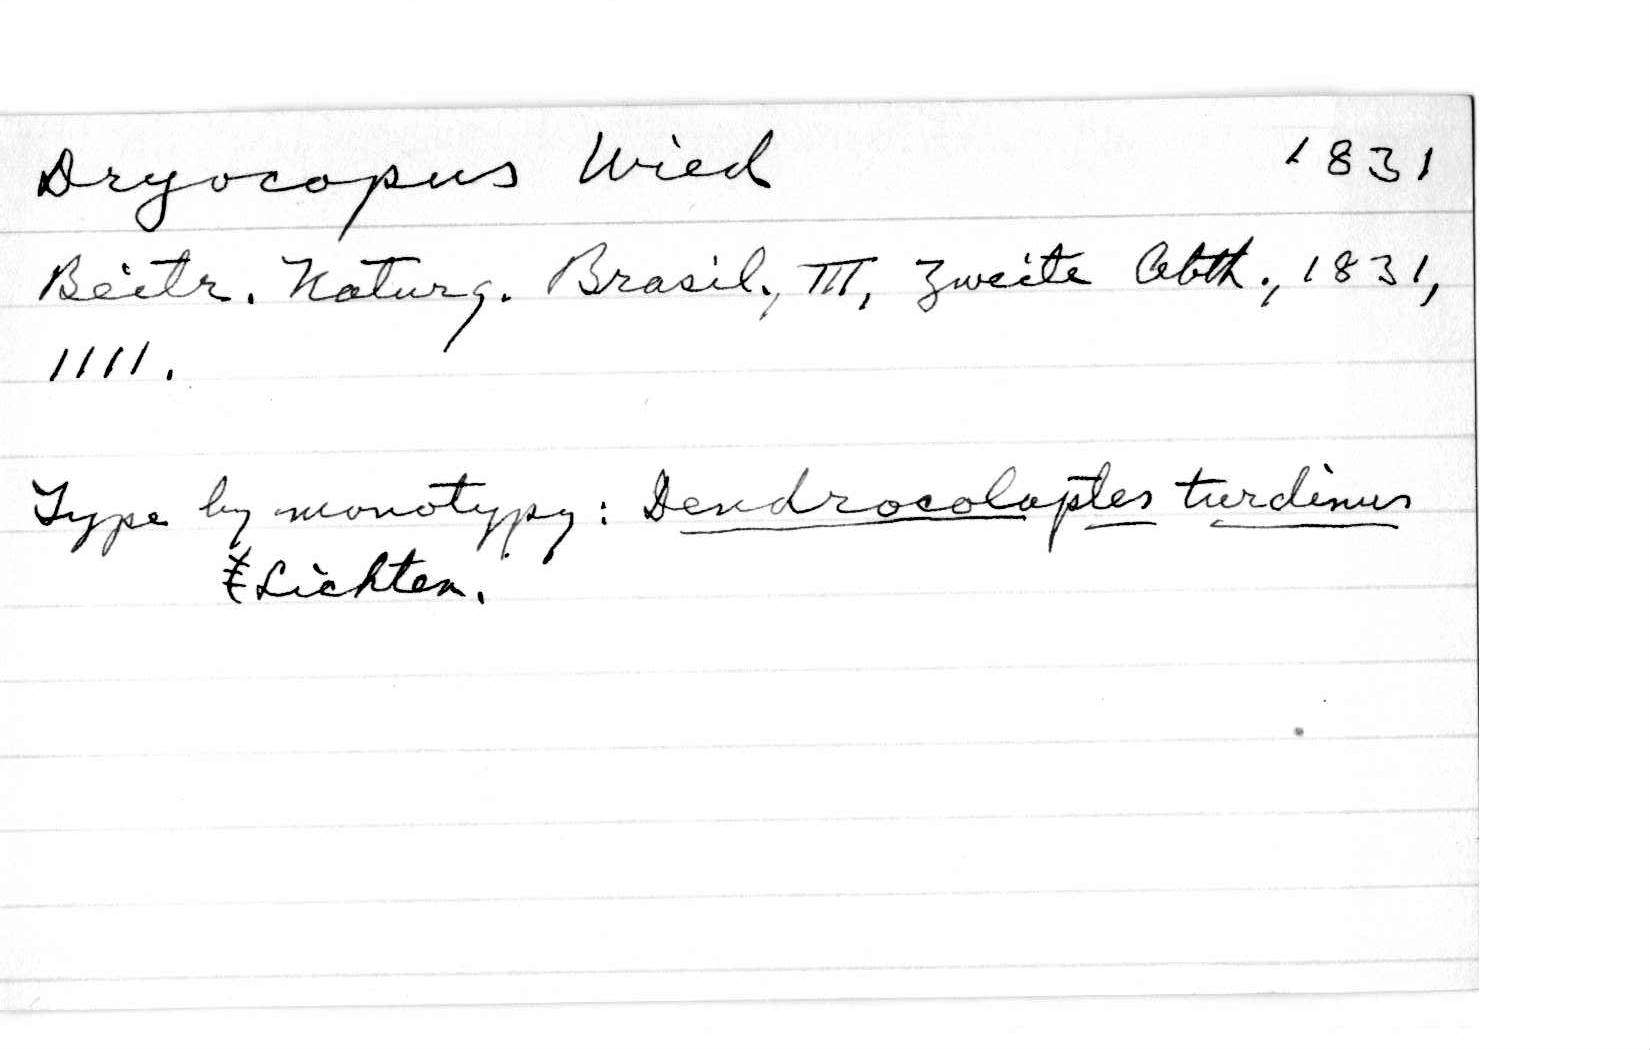 Dryocopus Wied 1831
Beitr. Naturg. Brasil., III, Zweite Abth., 1831,
1111.
Type by monotypy: Dendrocolaptes turdinus
Lichten.